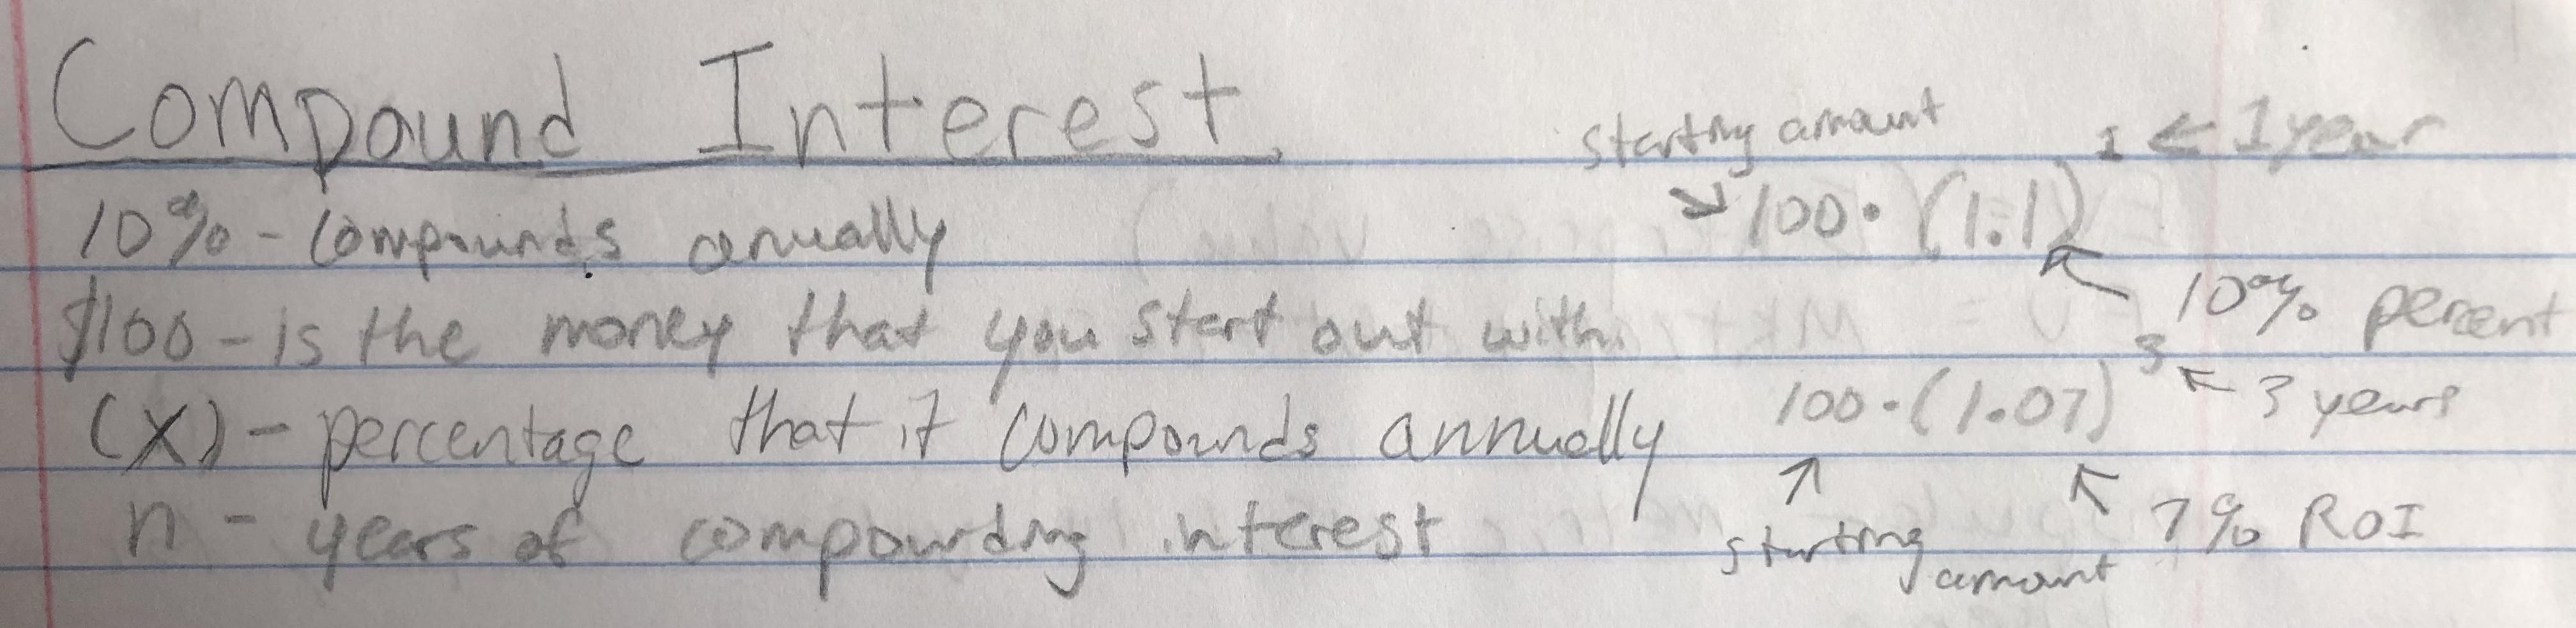 Compound Interest
10% - compounds anually
$100 - is the money that you start out with.
(X) - percentage that it compounds annually
n - years of compounding interest
starting amount
1 ← 1 year
↘ 100 · (1.1)
↖ 10% percent
3 ↖ 3 years
100 · (1.07)
↗ starting amount
↖ 7% ROI